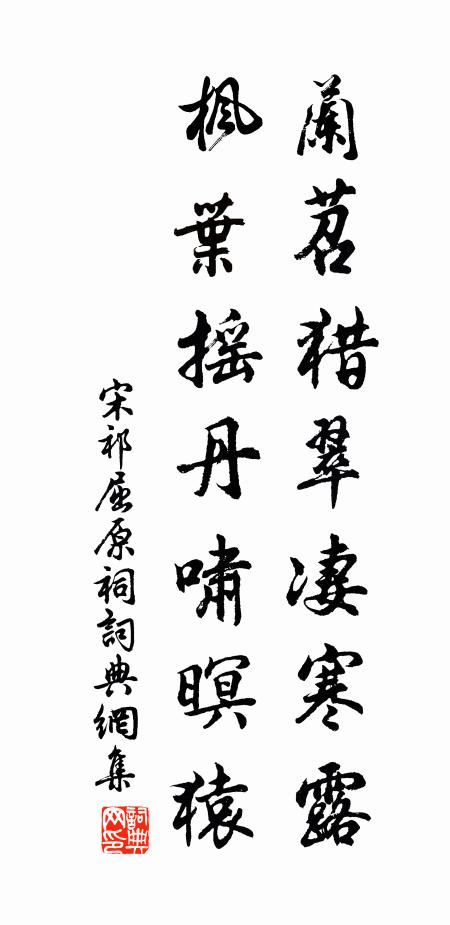 蘭苕猎翠凄寒露
楓葉摇丹嘯暝猿
宋祁屈原祠詞典網集
詞典网印